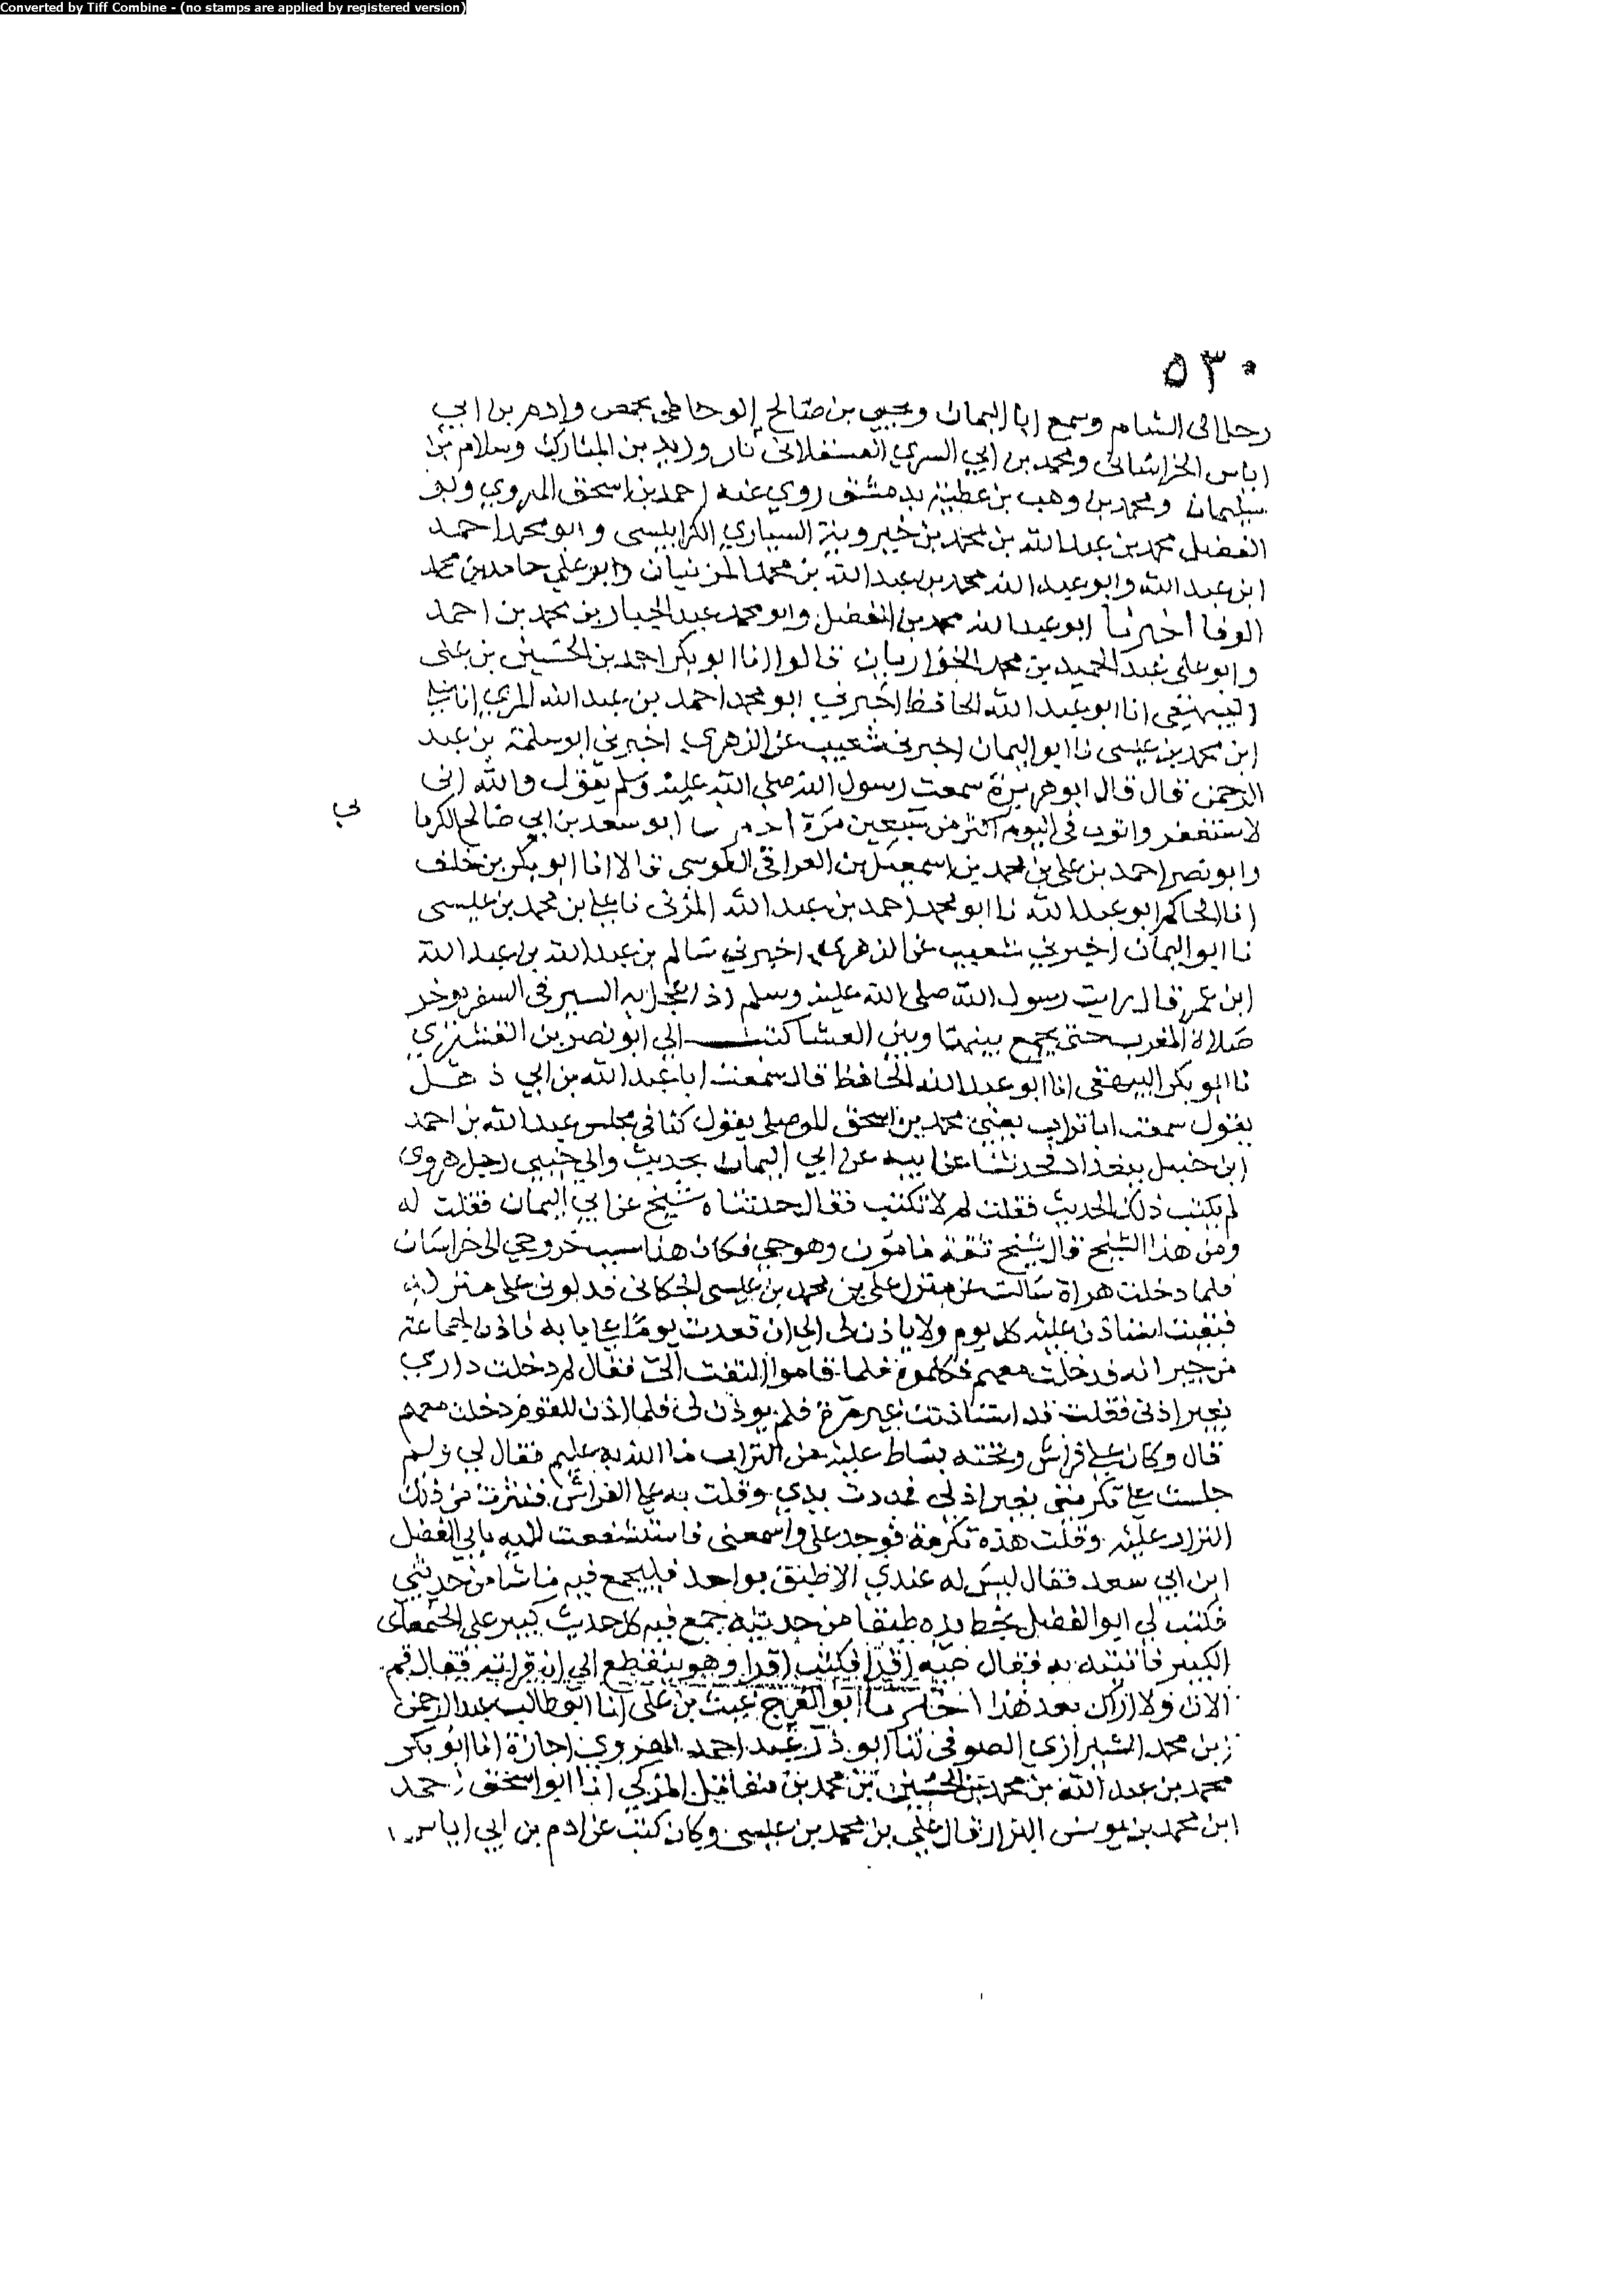 Converted by Tiff Combine - (no stamps are applied by registered version)
٥٣٠
رحل الى الشام وسمع ابا اليمان ويحيى بن صالح الوحاظي بحمص وادم بن ابي
اياس الخراساني ومحمد بن ابي السري العسقلاني ورواد بن وسلام بن
سليمان ومحمد بن وهب بن عطية بدمشق روي عنه احمد بن اسحق الهروي وابو
الفضل محمد بن عبد الله بن محمد بن خيرويه السياري الكرابيسي وابو محمد احمد
ابن عبد الله وابو عبد الله محمد بن عبد الله بن محمد المزنيان وابو علي حامد بن محمد
الرفا اخبرنا ابو عبد الله محمد بن الفضل وابو محمد عبد الجبار بن محمد بن احمد
وابو علي عبد الحميد بن محمد الخواريان قالوا انا ابو بكر احمد بن الحسين بن علي
البيهقي انا ابو عبد الله الحافظ اخبرني ابو محمد احمد بن عبد الله المزني انا علي
ابن محمد بن عيسى نا ابو اليمان اخبرني شعيب عن الزهري اخبرني ابو سلمة بن عبد
الرحمن قال قال ابو هريرة سمعت رسول الله صلى الله عليه وسلم يقول والله اني
لاستغفر واتوب في اليوم اكثر من سبعين مرة اخبرنا ابو سعد بن ابي صالح الكرما
ني
وابو نصر احمد بن علي بن محمد بن اسمعيل بن العراقي الطوسي قالا انا ابو بكر بن خلف
انا الحاكم ابو عبد الله نا ابو محمد احمد بن عبد الله المزني نا علي بن محمد بن عيسى
نا ابو اليمان اخبرني شعيب عن الزهري اخبرني سالم بن عبد الله بن عبد الله
ابن عمر قال رايت رسول الله صلى الله عليه وسلم اذا عجل به السير في السفر يوخر
صلاة المغرب حتى يجمع بينها وبين العشا كتب الي ابو نصر بن القشيري
نا ابو بكر البيهقي انا ابو عبد الله الحافظ قال سمعت ابا عبد الله بن ابي ذهل
يقول سمعت ابا تراب يعني محمد بن اسحق الموصلي يقول كنا في مجلس عبد الله بن احمد
ابن حنبل ببغداد فحدثنا عن ابيه عن ابي اليمان بحديث والى جنبي رجل هروي
لم يكتب ذلك الحديث فقلت لم لا تكتب فقال حدثناه شيخ عن ابي اليمان فقلت له
ومن هذا الشيخ قال شيخ ثقة مامون وهو حي فكان هذا سبب خروجي الى خراسان
فلما دخلت هراة سالت عن منزل علي بن محمد بن عيسى الجكاني فدلوني على منزله
فبقيت استاذن عليه كل يوم ولا ياذن لي الى ان قعدت يوما على بابه فاذن لجماعة
من جيرانه فدخلت معهم فكلموه فلما قاموا التفت الي فقال لم دخلت داري
بغير اذني فقلت قد استاذنت غير مرة فلم يوذن لي فلما اذن للقوم دخلت معهم
قال وكان على فراش وتحته بساط عليه من التراب ما الله به عليم فقال لي ولم
جلست على تكرمتي بغير اذني فمددت يدي وقلت به على الفراش فنثرت من ذلك
التراب عليه وقلت هذه تكرمة فوجد علي واسمعني فاستشفعت اليه بابي الفضل
ابن ابي سعد فقال ليس له عندي الا طبق واحد فليجمع فيه ما شا من حديثي
فكتب لي ابو الفضل بخط يده طبقا من حديثه جمع فيه كل حديث كبير على
الكبير فاتيته به فقال اقرا فكنت اقرا وهو ينقطع الى ان قراته فقال قم
الان ولا اراك بعد هذا اخبرنا ابو الفرج غيث بن علي انا ابو طالب عبد الرحمن
بن محمد الشيرازي الصوفي انا ابو ذر عبد احمد الهروي اجازة انا ابو بكر
محمد بن عبد الله بن محمد بن الحسين بن محمد بن مقاتل المزكي انا ابو اسحق احمد
ابن محمد بن يونس البزاز قال علي بن محمد بن عيسى وكان كتب عن ادم بن ابي اياس